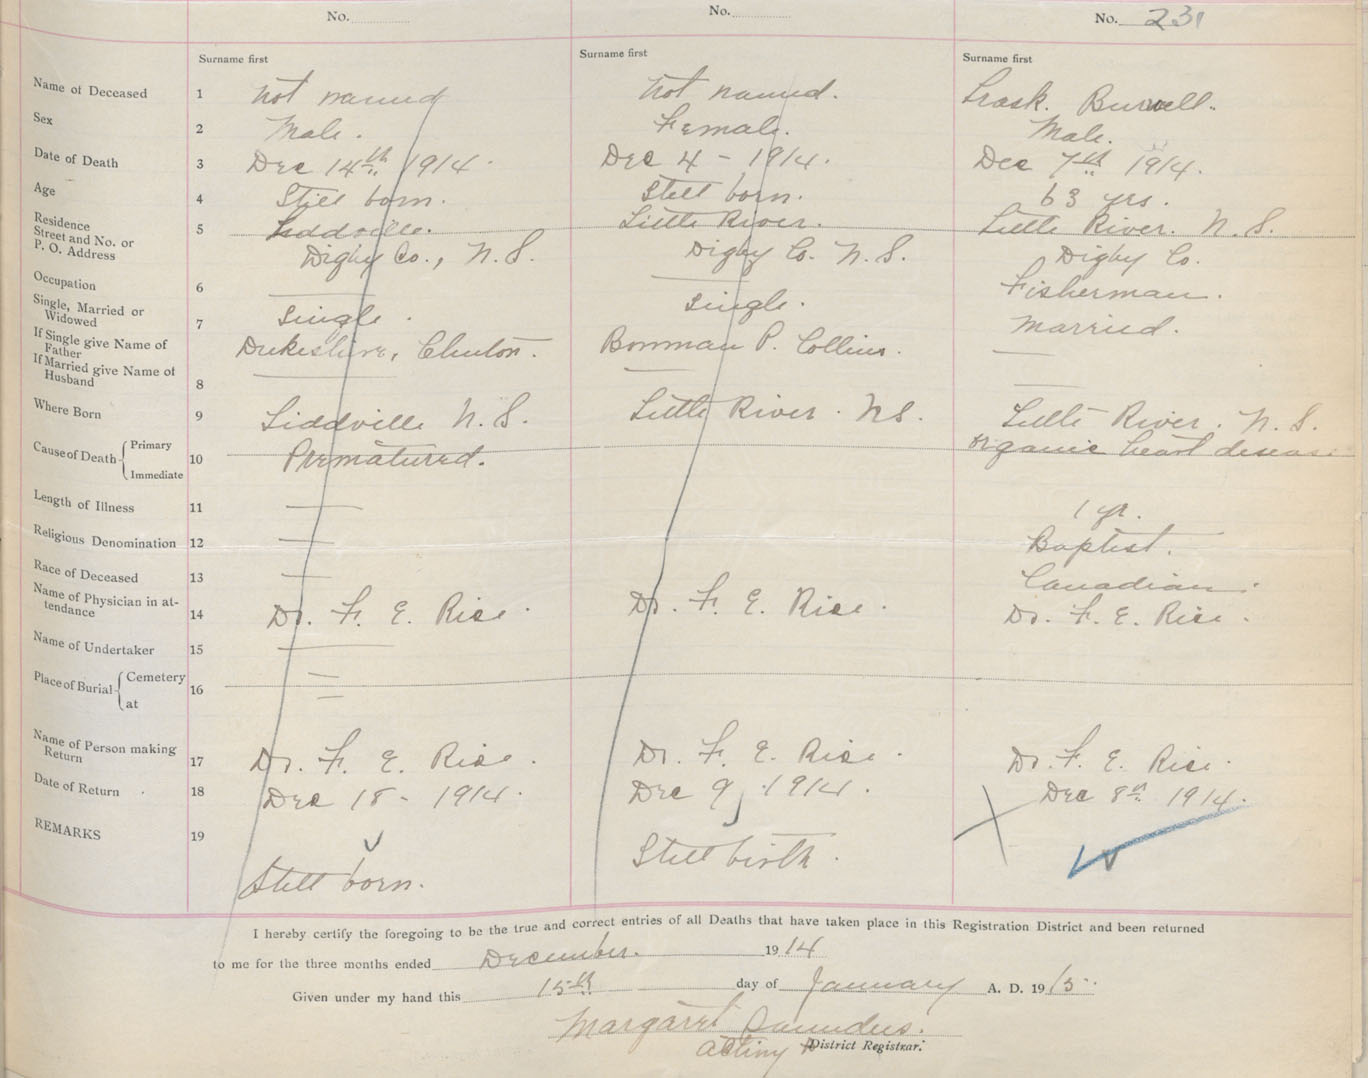 No. No. No. 231
Surname first Surname first Surname first
Name of Deceased 1 Not named Not named. Trask. Burwell.
Sex 2 Male. Female. Male.
Date of Death 3 Dec 14th 1914. Dec 4 - 1914. Dec 7th 1914.
Age 4 Still born. Still born. 63 yrs.
Residence
Street and No. or 5 Tiddville. Little River. Little River. N. S.
P. O. Address Digby Co., N. S. Digby Co. N. S. Digby Co.
Occupation 6 Fisherman.
Single, Married or
Widowed 7 Single. Single. Married.
If Single give Name of
Father Dukeshire, Clinton. Bowman P. Collins.
If Married give Name of
Husband 8
Where Born 9 Tiddville N. S. Little River. N.S. Little River. N. S.
Cause of Death Primary
Immediate 10 Prematured. organic heart disease
Length of Illness 11 1 yr.
Religious Denomination 12 Baptist.
Race of Deceased 13 Canadian.
Name of Physician in at-
tendance 14 Dr. F. E. Rice. Dr. F. E. Rice. Dr. F. E. Rice.
Name of Undertaker 15
Place of Burial Cemetery
at 16
Name of Person making
Return 17 Dr. F. E. Rice. Dr. F. E. Rice. Dr. F. E. Rice.
Date of Return 18 Dec 18 - 1914. Dec 9, 1914. Dec 8th 1914.
REMARKS 19
Still born. Still birth.
I hereby certify the foregoing to be the true and correct entries of all Deaths that have taken place in this Registration District and been returned
to me for the three months ended December. 1914
Given under my hand this 15th day of January A. D. 1915.
Margaret Saunders.
Acting District Registrar.